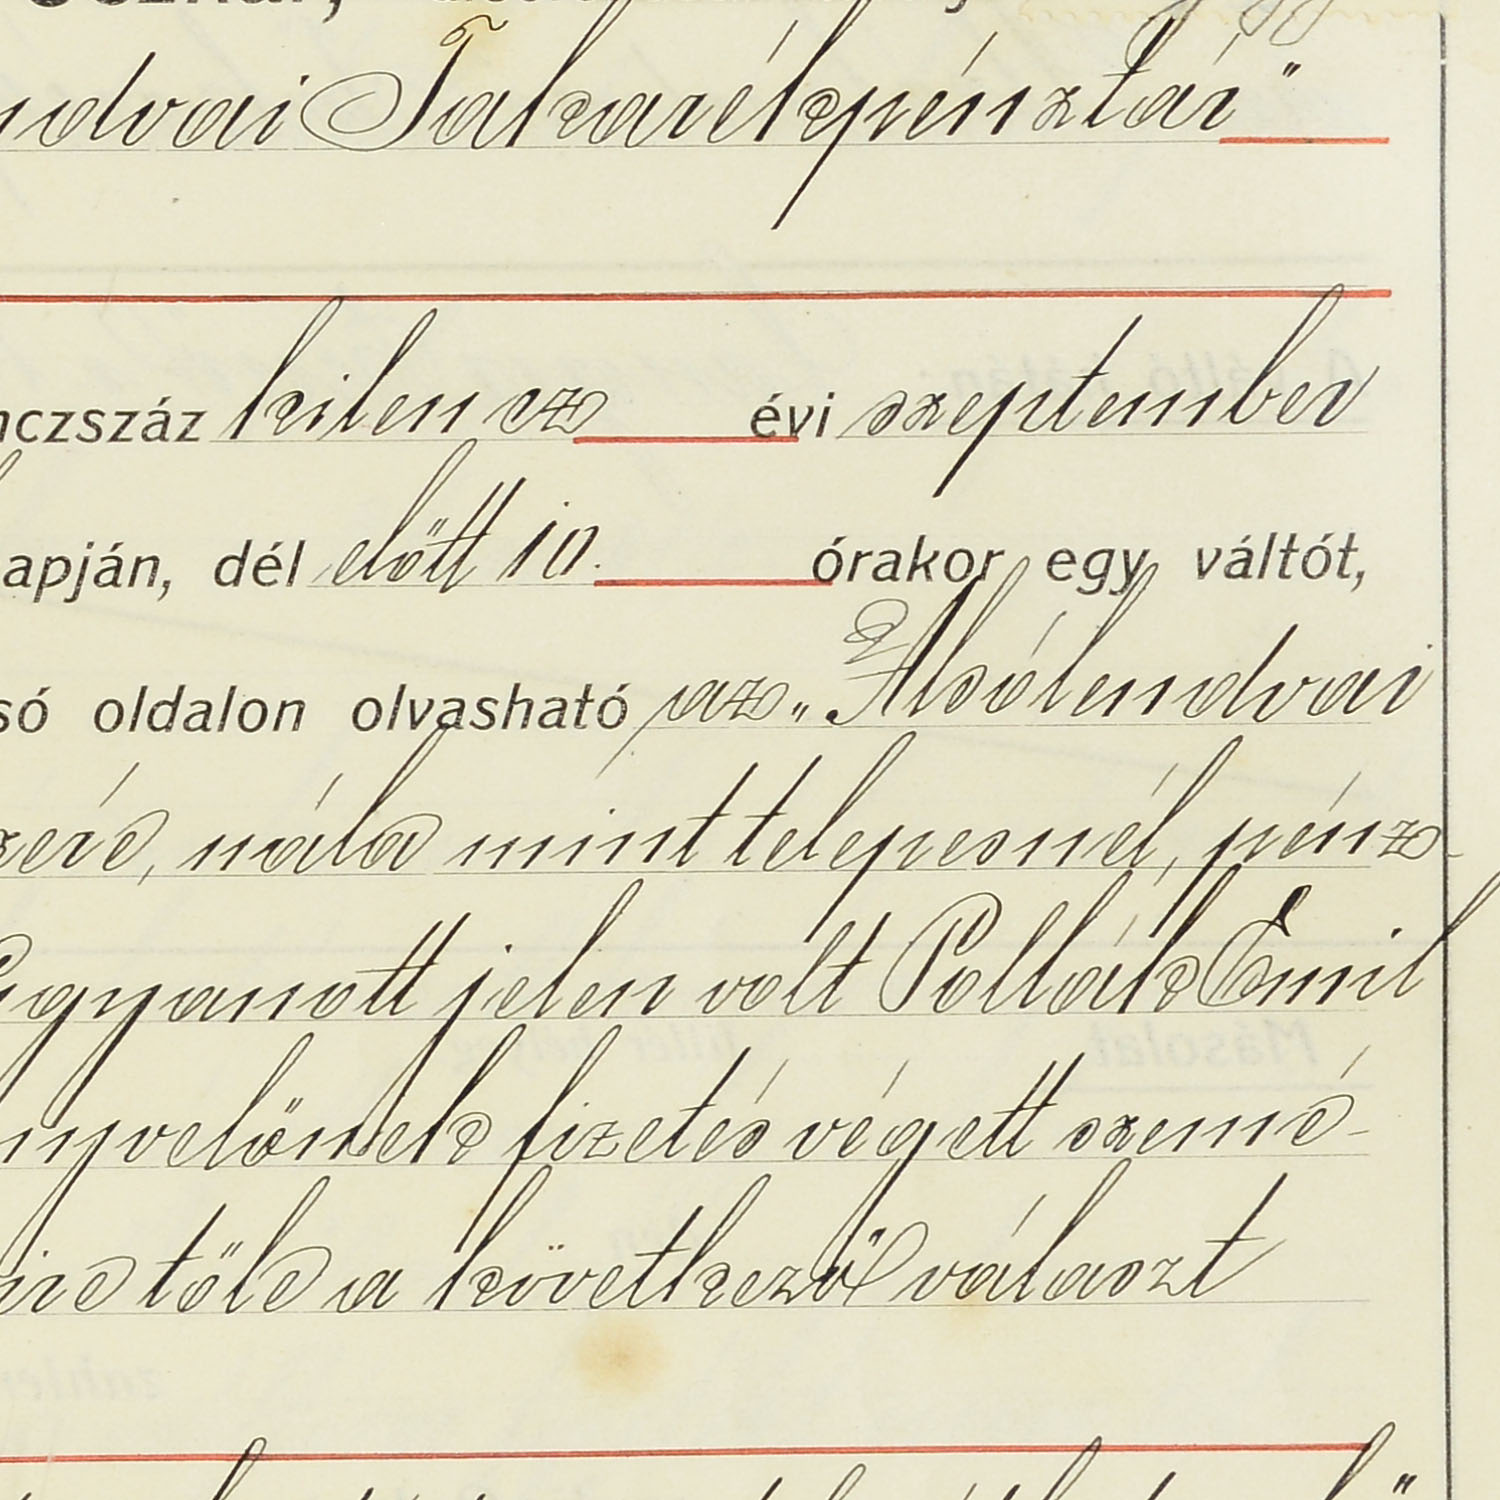 ndvai Takarékpénztár"
nczszáz kilencz évi szeptember
apján, dél előtt 10. órakor egy váltót,
só oldalon olvasható az „Alsólendvai
zeré, nála mint telepesnél, pénz-
Ugyanott jelen volt Pollák Emil
nyvelőnek fizetés végett szemé-
ire tőle a következő választ